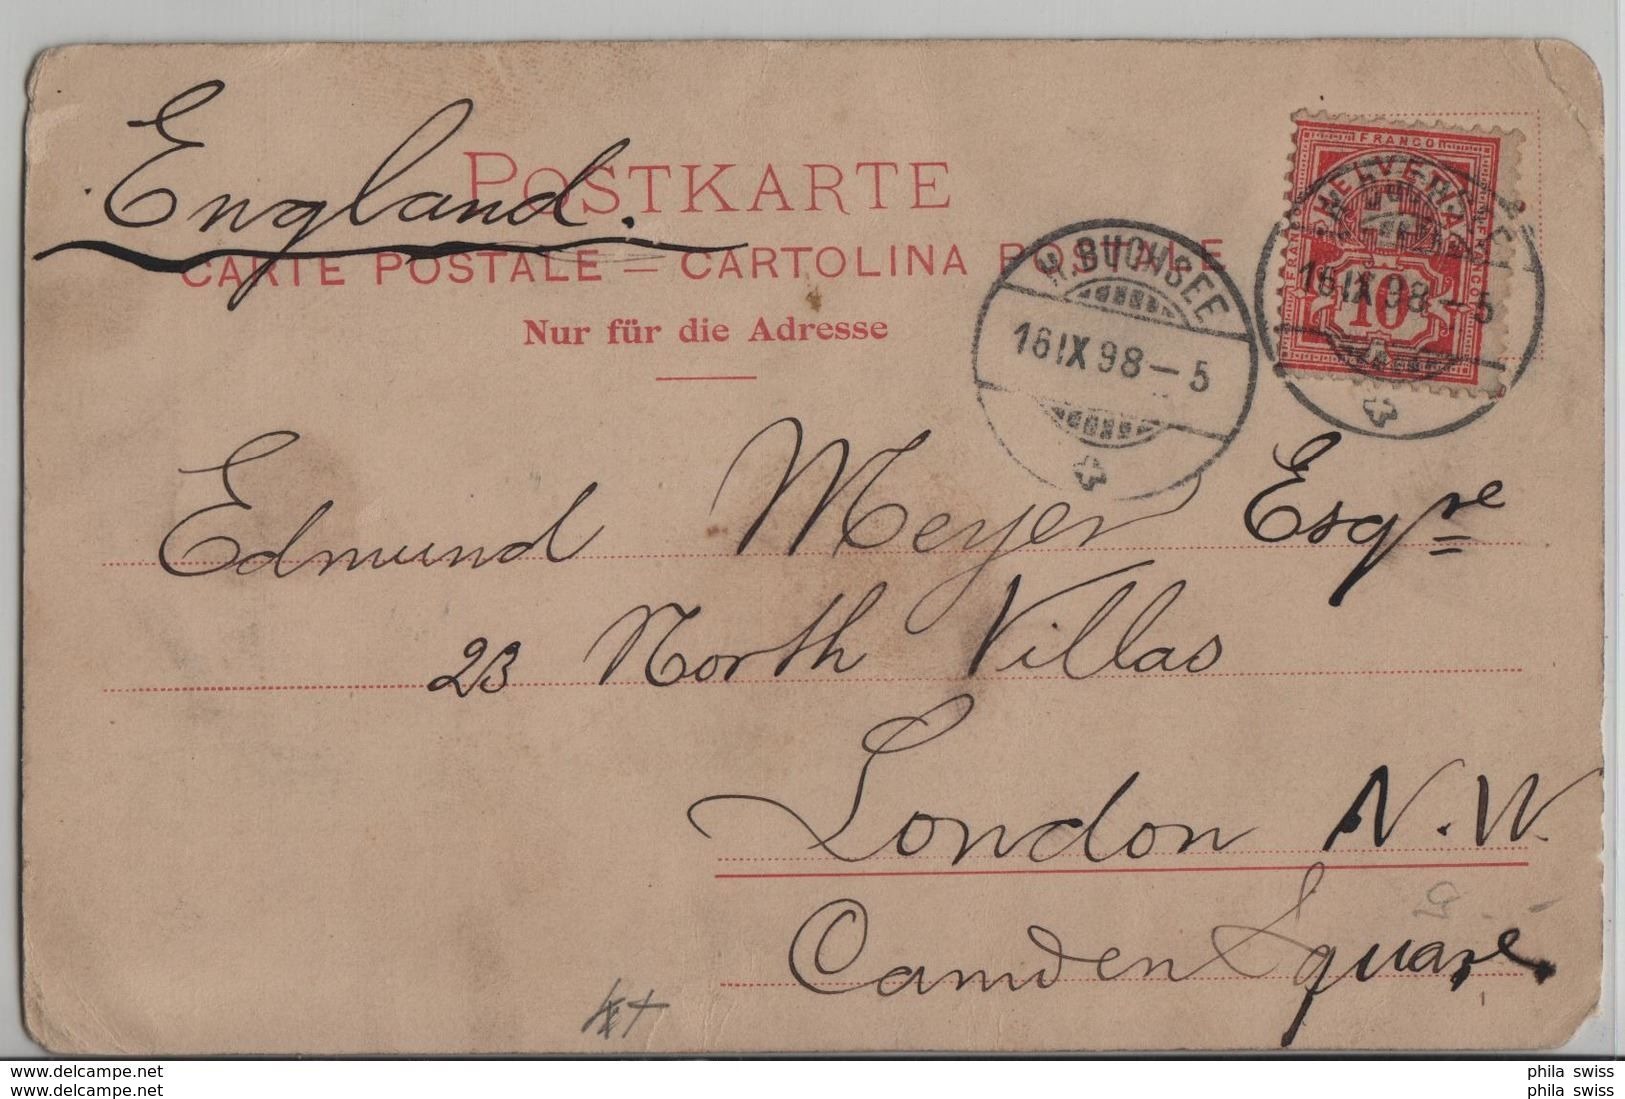 England.
POSTKARTE
CARTE POSTALE – CARTOLINA POSTALE
Nur für die Adresse
H.BUCHSEE
16 IX 98 – 5
FRANCO
HELVETIA
10
16 IX 98 – 5
Edmund Meyer Esqre
23 North Villas
London N.W.
Camden Square.
www.delcampe.net
www.delcampe.net
phila swiss
phila swiss